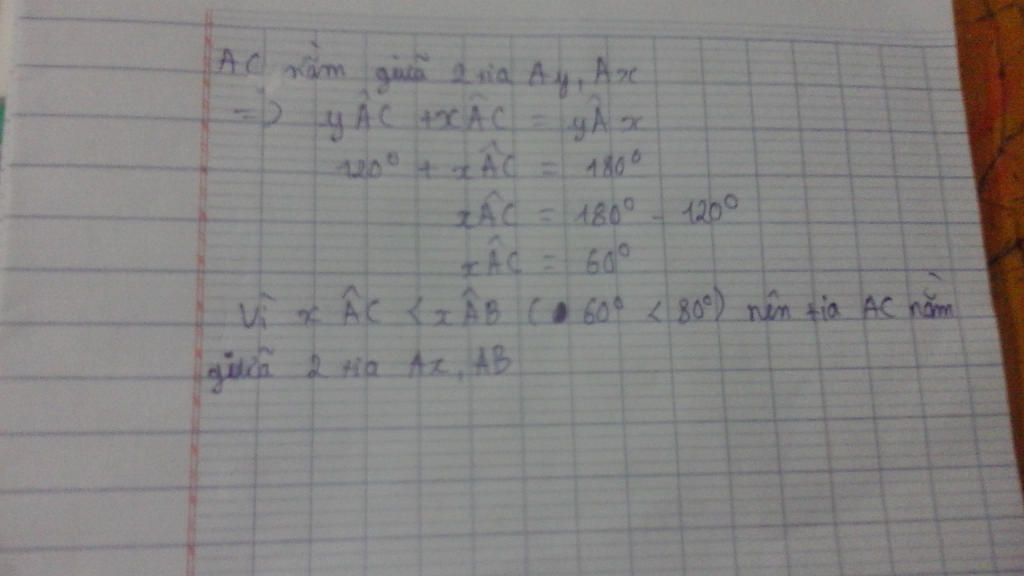 AC nằm giữa 2 tia Ay, Ax
=> yÂC + xÂC = yÂx
120⁰ + xÂC = 180⁰
xÂC = 180⁰ - 120⁰
xÂC = 60⁰
Vì xÂC < xÂB (60⁰ < 80⁰) nên tia AC nằm
giữa 2 tia Ax, AB